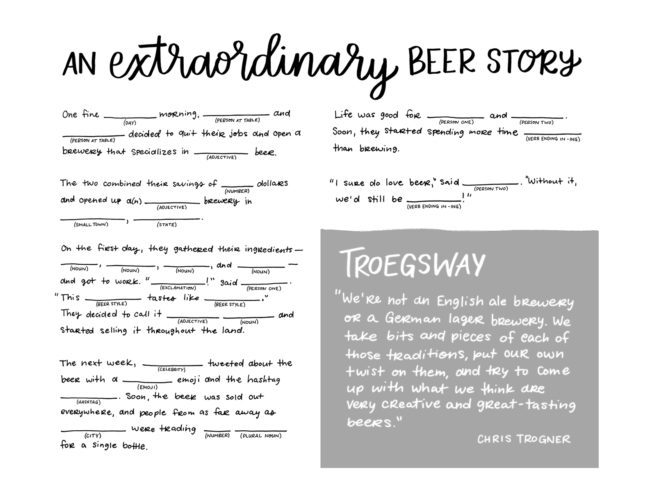 AN extraordinary BEER STORY
One fine ________ morning, ________ and
(DAY) (PERSON AT TABLE)
________ decided to quit their jobs and open a
(PERSON AT TABLE)
brewery that specializes in ________ beer.
(ADJECTIVE)
The two combined their savings of ________ dollars
(NUMBER)
and opened up a(n) ________ brewery in
(ADJECTIVE)
________, ________.
(SMALL TOWN) (STATE)
On the first day, they gathered their ingredients—
________, ________, ________, and ________—
(NOUN) (NOUN) (NOUN) (NOUN)
and got to work. "________!" said ________.
(EXCLAMATION) (PERSON ONE)
"This ________ tastes like ________."
(BEER STYLE) (BEER STYLE)
They decided to call it ________ ________ and
(ADJECTIVE) (NOUN)
started selling it throughout the land.
The next week, ________ tweeted about the
(CELEBRITY)
beer with a ________ emoji and the hashtag
(EMOJI)
________. Soon, the beer was sold out
(HASHTAG)
everywhere, and people from as far away as
________ were trading ________ ________
(CITY) (NUMBER) (PLURAL NOUN)
for a single bottle.
Life was good for ________ and ________.
(PERSON ONE) (PERSON TWO)
Soon, they started spending more time ________
(VERB ENDING IN -ING)
than brewing.
"I sure do love beer," said ________. "Without it,
(PERSON TWO)
we'd still be ________!"
(VERB ENDING IN -ING)
TROEGSWAY
"We're not an English ale brewery
or a German lager brewery. We
take bits and pieces of each of
those traditions, put our own
twist on them, and try to come
up with what we think are
very creative and great-tasting
beers."
CHRIS TROGNER